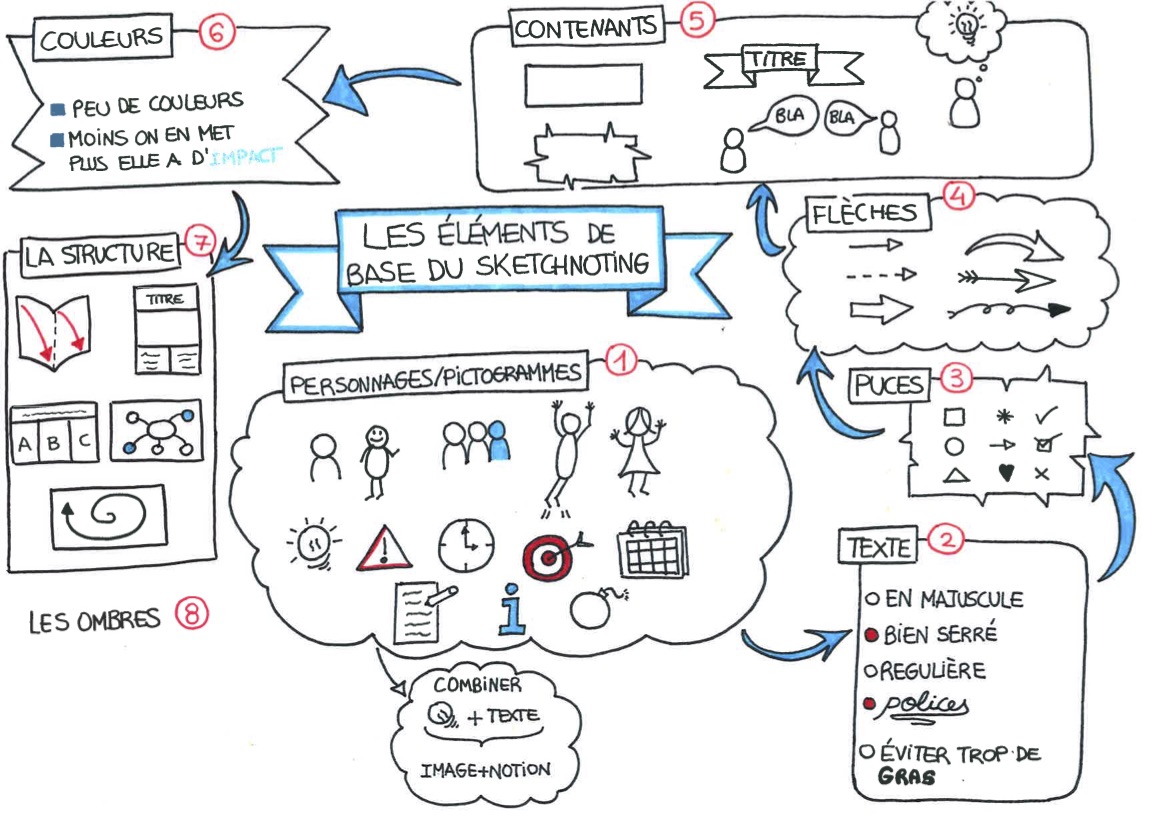 LES ÉLÉMENTS DE
BASE DU SKETCHNOTING
PERSONNAGES/PICTOGRAMMES 1
!
i
COMBINER
+ TEXTE
IMAGE+NOTION
TEXTE 2
EN MAJUSCULE
BIEN SERRÉ
REGULIÈRE
polices
ÉVITER TROP DE
GRAS
PUCES 3
FLÈCHES 4
CONTENANTS 5
TITRE
BLA BLA
COULEURS 6
PEU DE COULEURS
MOINS ON EN MET
PLUS ELLE A D'IMPACT
LA STRUCTURE 7
TITRE
A B C
LES OMBRES 8